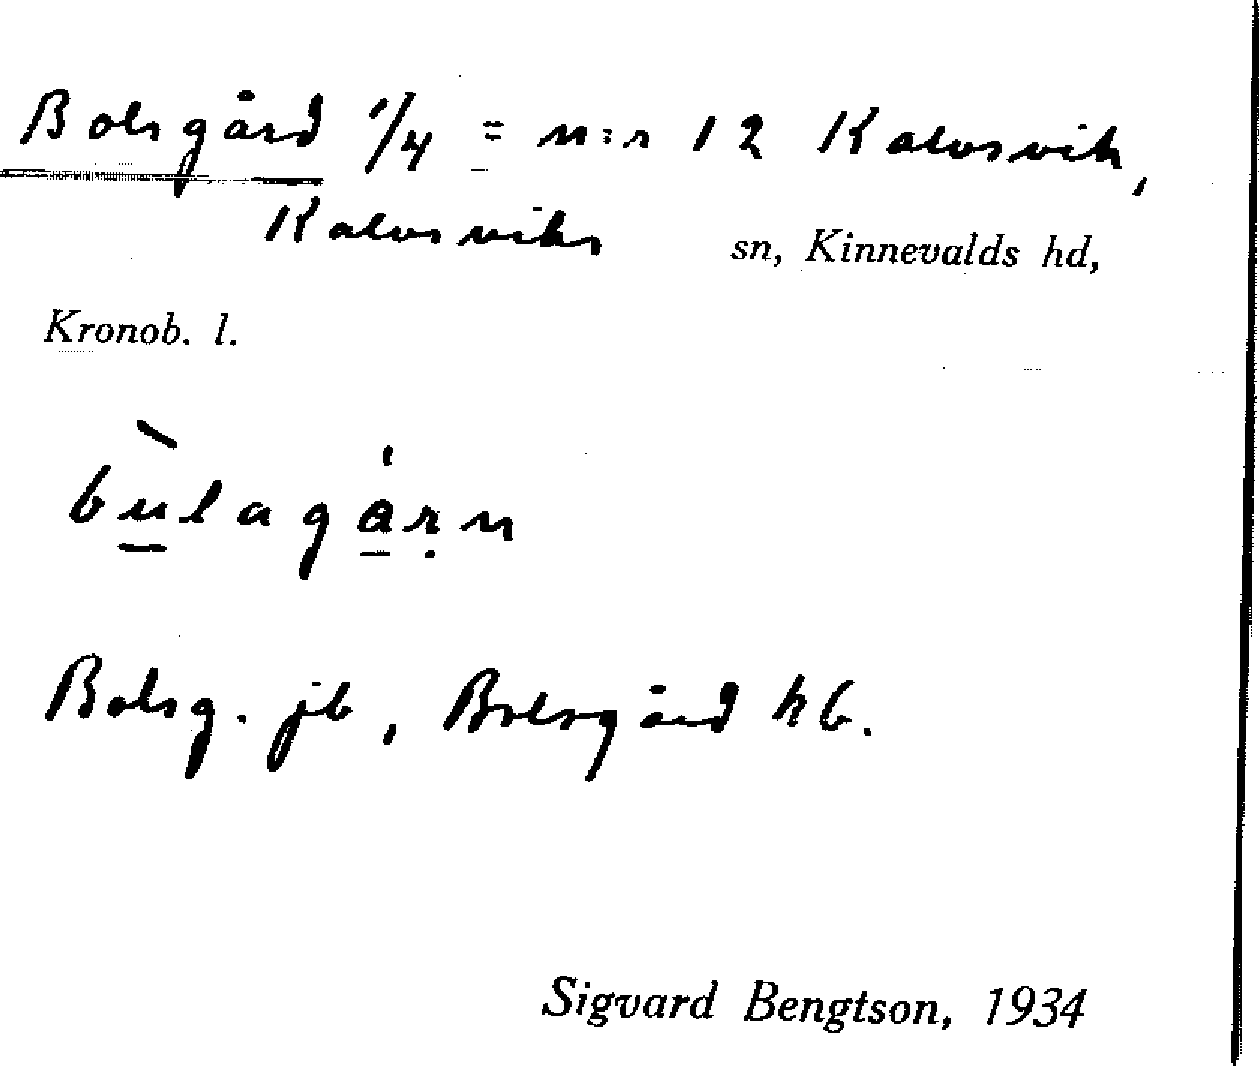 Bolsgård 1/4 = n:r 12 Kalvsvik,
Kalvsviks sn, Kinnevalds hd,
Kronob. l.
bù̠lagå̠rṇ
Bolsg. jb, Bolsgård hb.
Sigvard Bengtson, 1934